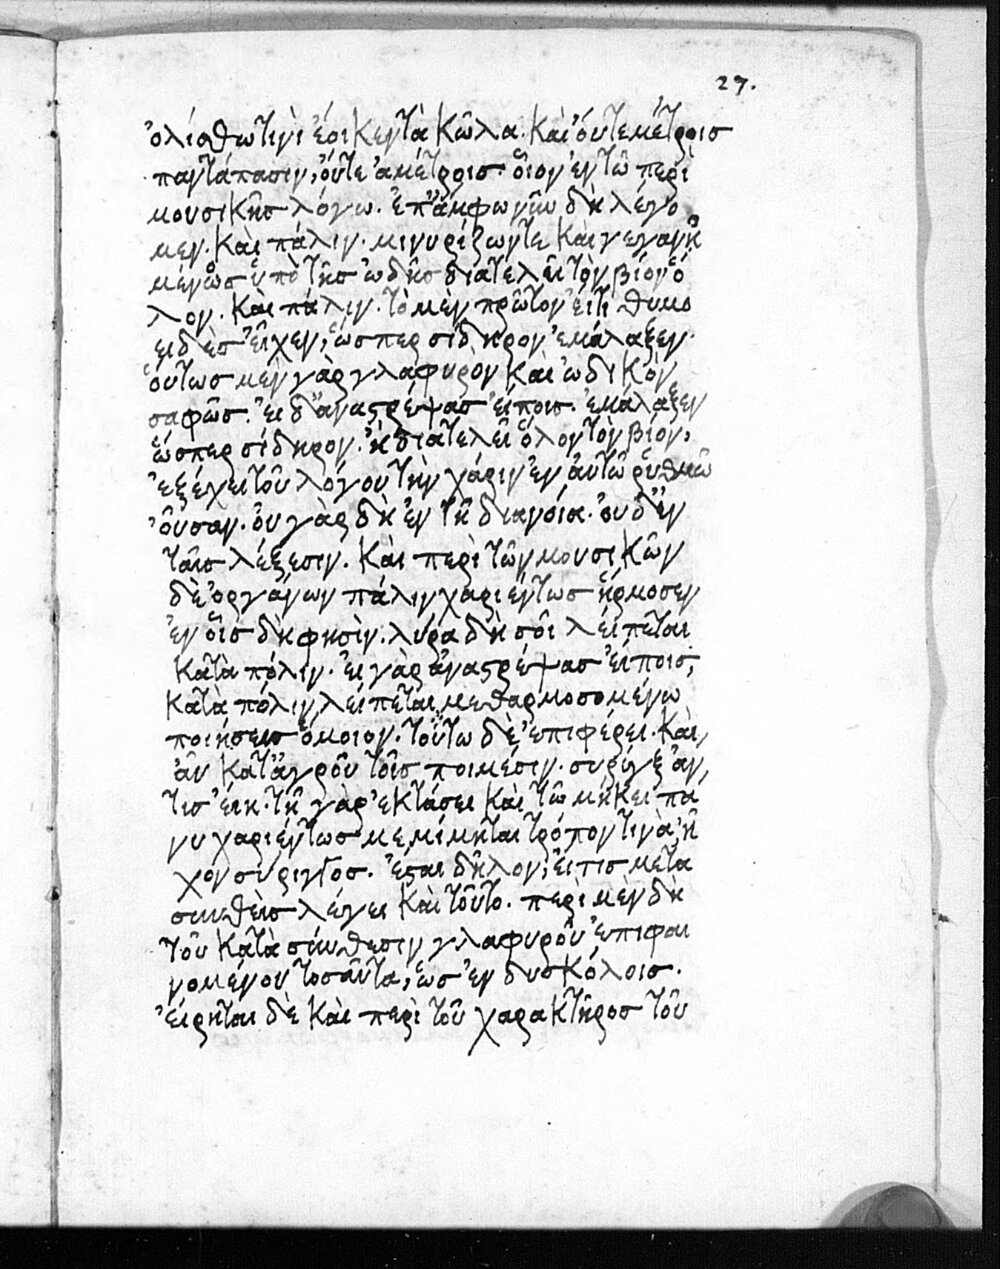 27.
ὀλίσθω τινὶ ἔοικεν τὰ κῶλα. καὶ οὔτε μέτροις
παντάπασιν, οὔτε ἀμέτροις. οἷον ἐν τῶ περὶ
μουσικῆς λόγω. ἐπ' ἂμφωνῖω δὴ λέγο
μεν. καὶ πάλιν. μινυρίζων τε καὶ γεγανω
μένως ὑπὸ τῆς ὠδῆς διατελεῖ τὸν βίον ὅ
λον. καὶ πάλιν. τὸ μὲν πρῶτον εἴ τι θυμο
ειδὲς εἶχεν, ὥσπερ σίδηρον ἐμάλαξεν.
οὕτως μὲν γὰρ γλαφυρὸν καὶ ὠδικὸν
σαφῶς. εἰ δ' ἀναστρέψας εἴποις. ἐμάλαξεν
ὥσπερ σίδηρον. ἢ διατελεῖ ὅλον τὸν βίον,
ἐξέχει τοῦ λόγου τὴν χάριν ἐν ἀυτῶ ῥυθμῶ
οὖσαν. οὐ γὰρ δὴ ἐν τῆ διανοία. οὐδ' ἐν
ταῖς λέξεσιν. καὶ περὶ τῶν μουσικῶν
δὲ ὀργάνων πάλιν χαριέντως ἥρμοσεν
ἐν οἷς δὴ φησὶν. λύρα δὴ σοι λείπεται
κατὰ πόλιν. εἰ γὰρ ἀναστρέψας εἴποις,
κατὰ πόλιν λείπεται, μεθαρμοσομένω
ποιήσεις ὅμοιον. τούτω δὲ ἐπιφέρει. καὶ,
ἂν κατ' ἀγροῦ τοῖς ποιμέσιν. συρίγξ ἄν,
τις εἴη. τῆ γὰρ ἐκτάσει καὶ τῶ μήκει πά
νυ χαριέντως μεμίμηται τρόπον τινὰ ἦ
χον σύριγγος. ἔσται δῆλον, εἴ τις μετα
συνθεὶς λέγει καὶ τοῦτο. περὶ μὲν δὴ
τοῦ κατὰ σύνθεσιν γλαφυροῦ ἐπιφαι
νομένου τοσαῦτα, ὡς ἐν δυσκόλοις.
εἴρηται δὲ καὶ περὶ τοῦ χαρακτῆρος τοῦ